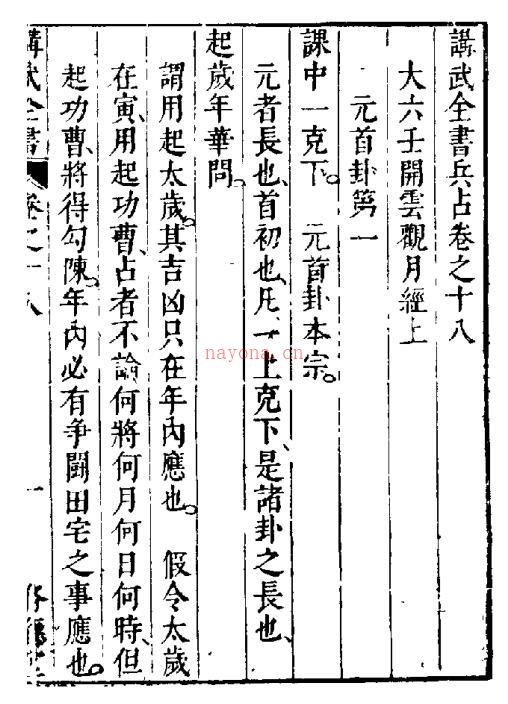 講武全書兵占卷之十八
大六壬開雲觀月經上
元首卦第一
課中一克下。 元首卦本宗。
元者長也、首初也、凡一上克下、是諸卦之長也、
起歲年華問。
謂用起太歲。其吉凶只在年內應也。 假令太歲
在寅、用起功曹、占者不論何將何月何日何時、但
起功曹、將得勾陳、年內必有爭鬪田宅之事應也。
講武全書 卷之十八 一
nayona.cn